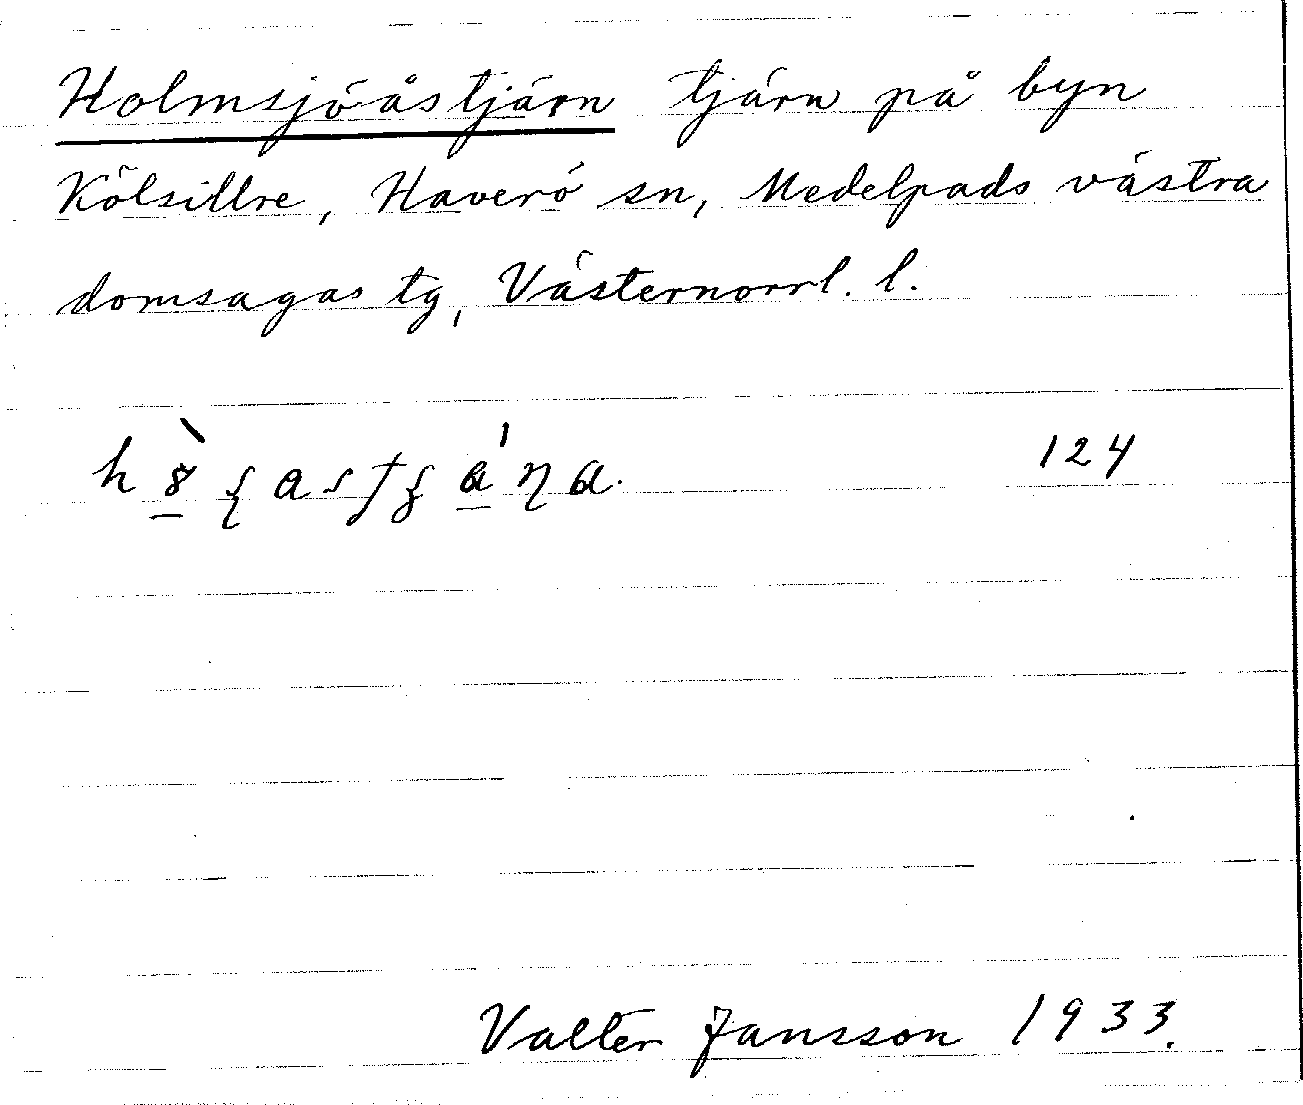 Holmsjöåstjärn tjärn på byn
Kölsillre, Haverö sn, Medelpads västra
domsagas tg, Västernorrl. l.
124
Valter Jansson 1933.